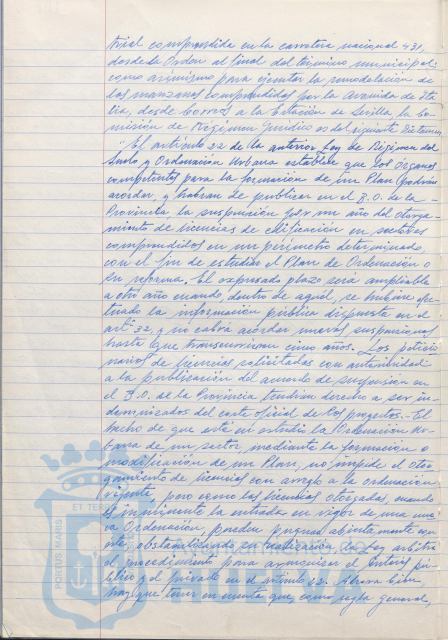 trial comprendida en la carretera nacional 431,
desde la Orden al final del término municipal:
como asimismo para ejecutar la remodelación de
las manzanas comprendidas por la Avenida de Ita-
lia, desde Correos a la Estación de Sevilla, la Co-
misión de Régimen Jurídico es del siguiente Dictamen,
"El artículo 22 de la anterior Ley de Régimen del
Suelo y Ordenación Urbana establece que los Órganos
competentes para la formación de un Plan podrán
acordar, y habrán de publicar en el B.O. de la
Provincia la suspensión por un año del otorga-
miento de licencias de edificación en sectores
comprendidos en un perímetro determinado,
con el fin de estudiar el Plan de Ordenación o
su reforma. El expresado plazo será ampliable
a otro año cuando, dentro de aquél, se hubiere efec-
tuado la información pública dispuesta en el
artº 32, y no cabrá acordar nuevas suspensiones
hasta que transcurrieren cinco años. Los peticio-
narios de licencias solicitadas con anterioridad
a la publicación del acuerdo de suspensión en
el B.O. de la Provincia tendrán derecho a ser in-
demnizados del coste oficial de los proyectos. El
hecho de que esté en estudio la Ordenación Ur-
bana de un sector, mediante la formación o
modificación de un Plan, no impide el otor-
gamiento de licencias con arreglo a la ordenación
vigente, pero como las licencias otorgadas, cuando
es inminente la entrada en vigor de una nue-
va Ordenación, pueden pugnar abiertamente con
esta, obstaculizando su realización la Ley arbitró
el procedimiento para armonizar el interés pú-
blico y el privado en el artículo 22. Ahora bien,
hay que tener en cuenta que, como regla general,
PORTUS MARIS ET TER